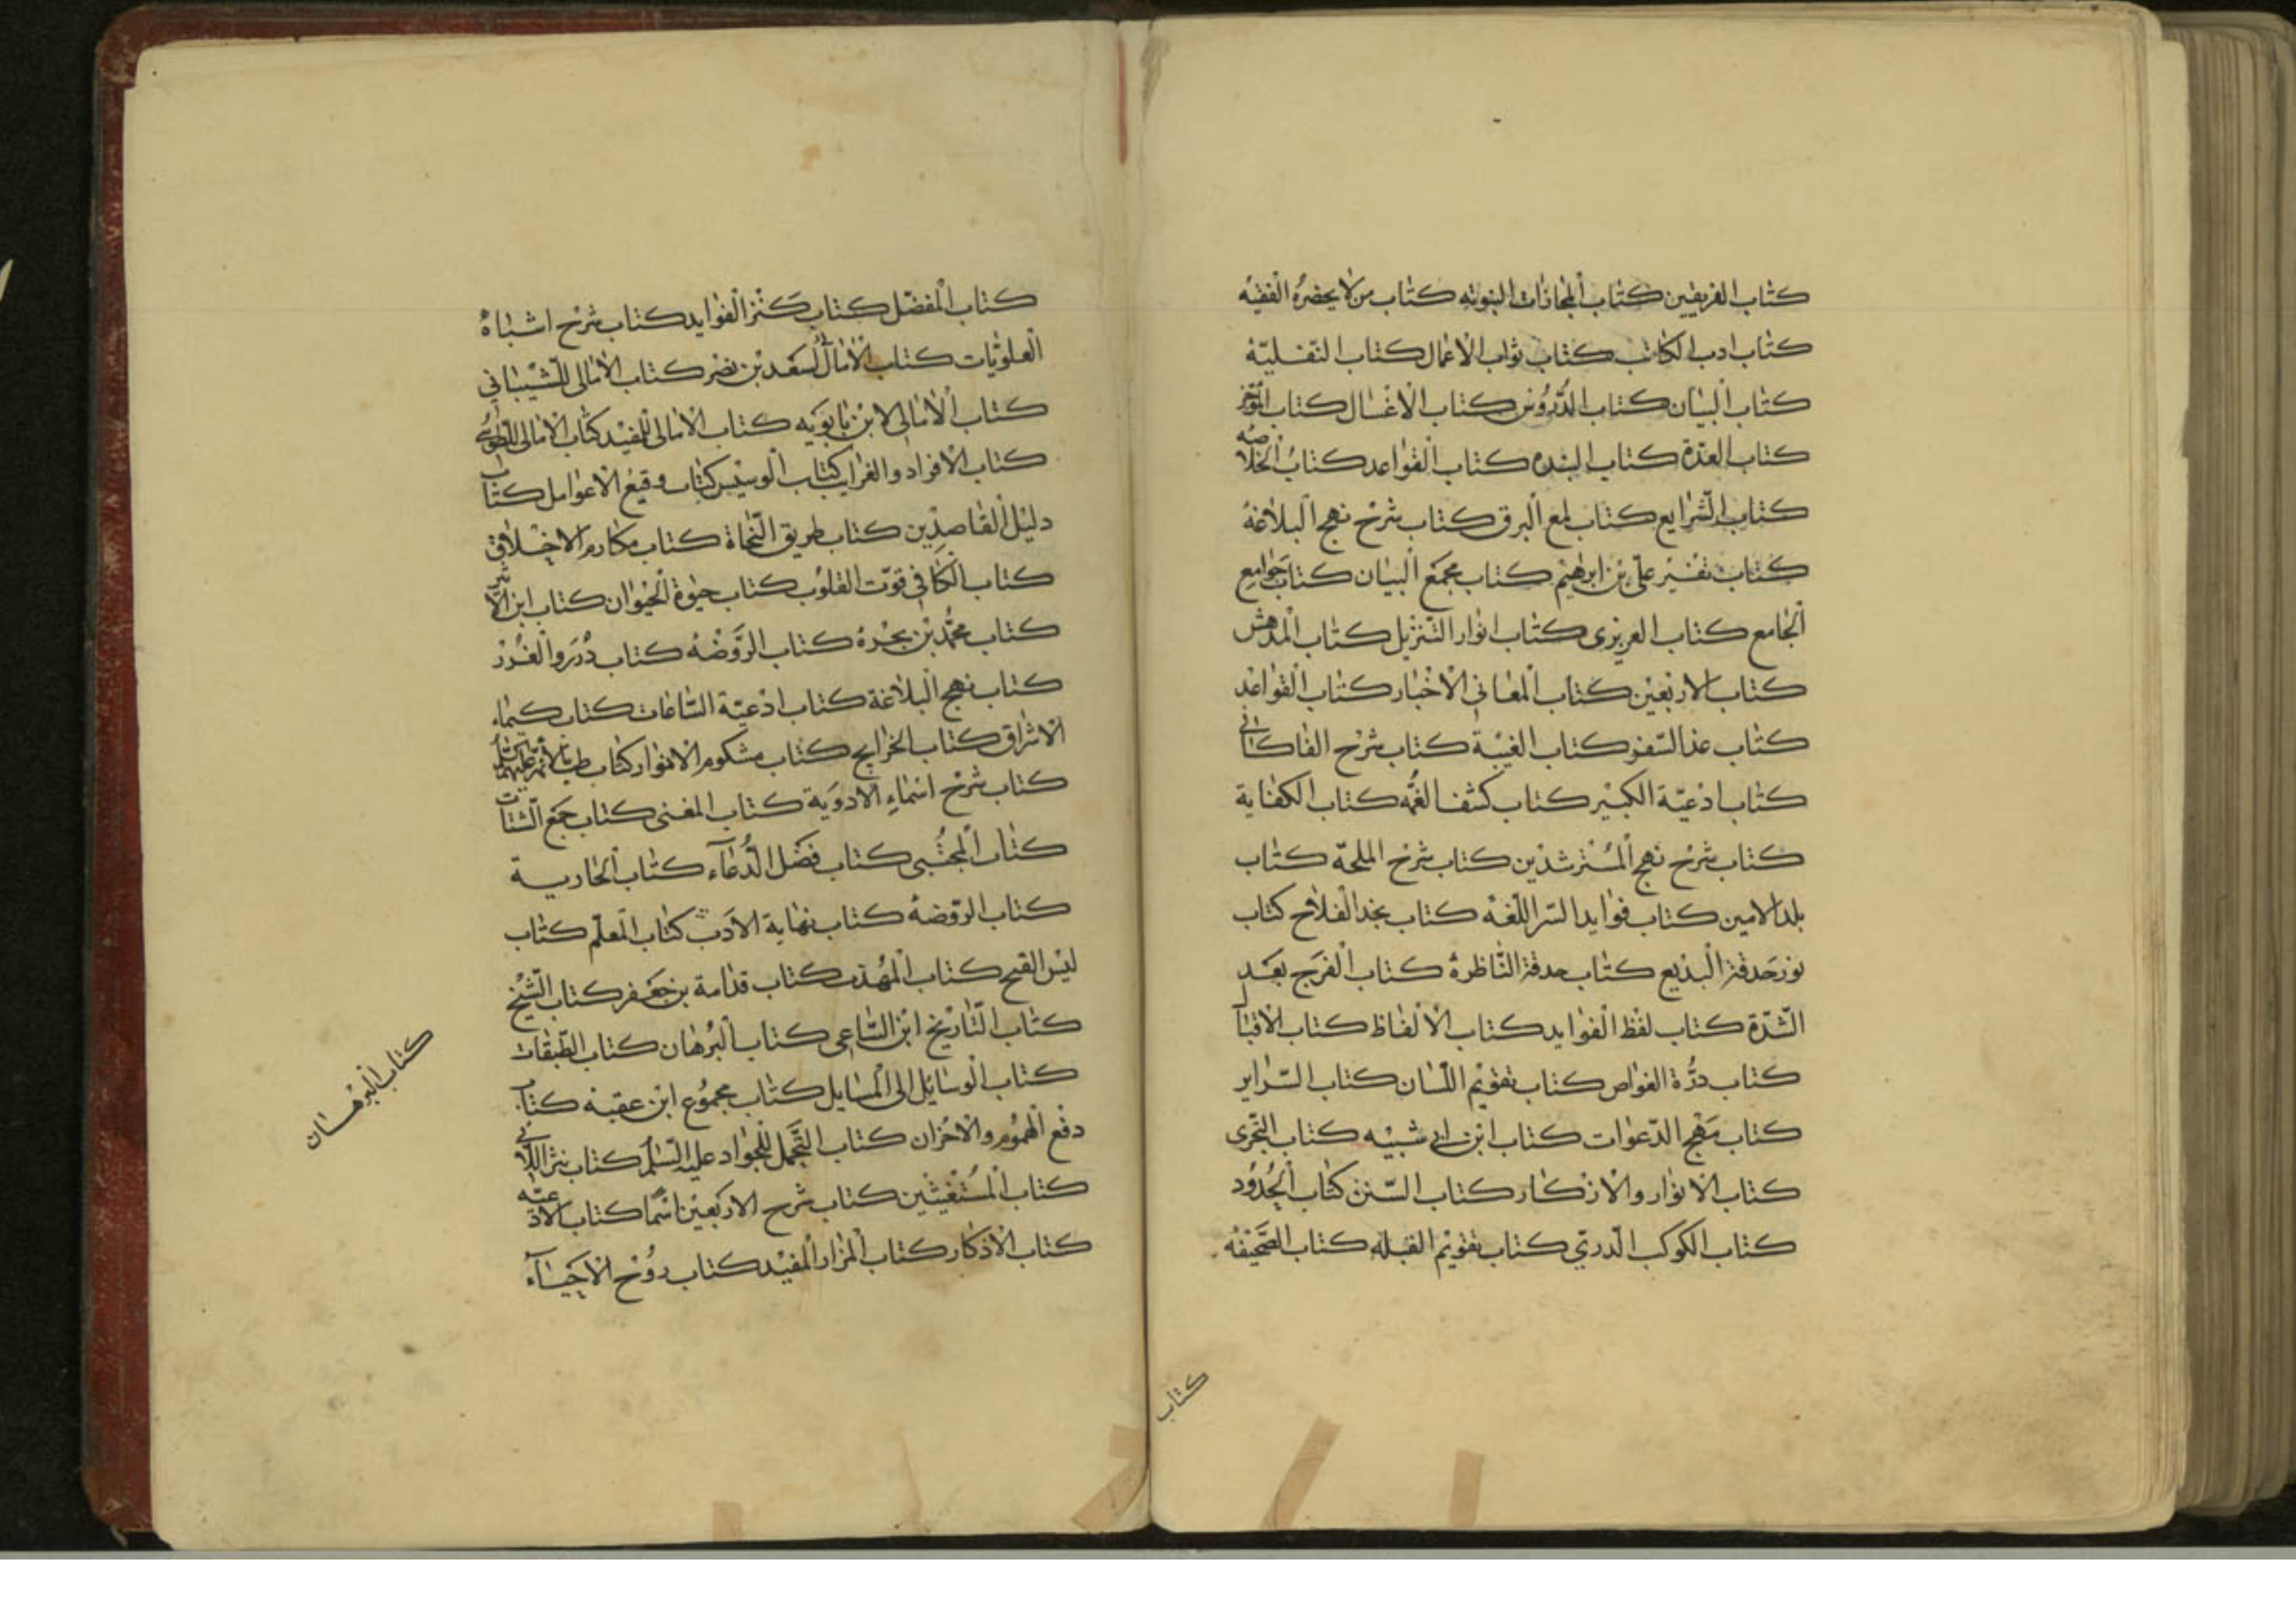 كتاب الغريبين كتاب المجازات النبوية كتاب من لا يحضره الفقيه
كتاب ادب الكاتب كتاب ثواب الاعمال كتاب النفلية
كتاب البيان كتاب الدروس كتاب الاغسال كتاب الموجز
كتاب العدة كتاب كتاب القواعد كتاب الخلاصة
كتاب الشرايع كتاب لمع البرق كتاب شرح نهج البلاغة
كتاب تفسير علي بن ابرهيم كتاب مجمع البيان كتاب جوامع
الجامع كتاب العزيزى كتاب انوار التنزيل كتاب المدهش
كتاب الاربعين كتاب المعانى الاخبار كتاب القواعد
كتاب كتاب الغيبة كتاب شرح القاكانى
كتاب ادعية الكبير كتاب كشف الغمه كتاب الكفاية
كتاب شرح نهج المسترشدين كتاب شرح الملحة كتاب
بلد الامين كتاب فوايد السر اللغه كتاب نجد الفلاح كتاب
نور حدقة البديع كتاب حدقة الناظرة كتاب الفرج بعد
الشدة كتاب لفظ الفوايد كتاب الالفاظ كتاب
كتاب درة الغواص كتاب تقويم اللسان كتاب السراير
كتاب مهج الدعوات كتاب ابن ابى شيبه كتاب التحرى
كتاب الانوار والاذكار كتاب السنن كتاب الحدود
كتاب الكوكب الدري كتاب تقويم القبله كتاب الصحيفة
كتاب
كتاب المفضل كتاب كنز الفوايد كتاب شرح اشباه
العلويات كتاب الامالى لسعد بن نصر كتاب الامالى للشيبانى
كتاب الامالى لابن بابويه كتاب الامالى للمفيد كتاب الامالى للطوسى
كتاب الافراد والغرايب كتاب كتاب كتاب
دليل القاصدين كتاب طريق النجاة كتاب مكارم الاخلاق
كتاب الكافى قوت القلوب كتاب حيوة الحيوان كتاب ابن الاثير
كتاب محمد بن بحرة كتاب الروضه كتاب درر والغرر
كتاب نهج البلاغة كتاب ادعية الساعات كتاب كيماء
الاشراق كتاب الخرايج كتاب مشكوة الانوار كتاب طب الائمة عليهم السلم
كتاب شرح اسماء الادوية كتاب المغنى كتاب جمع الشتات
كتاب المجتبى كتاب فضل الدعاء كتاب
كتاب الروضة كتاب نهاية الادب كتاب المعلم كتاب
ليس القبح كتاب المهذب كتاب قدامة بن جعفر كتاب الشيخ
كتاب التاريخ ابن الساعى كتاب البرهان كتاب الطبقات
كتاب الوسائل الى المسايل كتاب مجموع ابن عقبة كتاب
دفع الهموم والاحزان كتاب التجمل للجواد عليه السلم كتاب نثر اللالى
كتاب المستغيثين كتاب شرح الاربعين اسما كتاب الادعية
كتاب الاذكار كتاب المزار المفيد كتاب روح الاحياء
كتاب البرهان